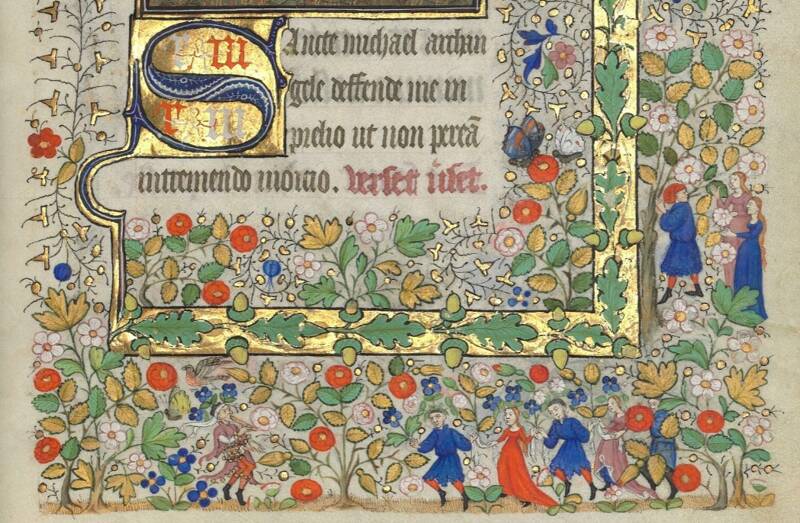 Sancte michael archan
gele deffende me in
prelio ut non pereā
in tremendo iudicio. verset